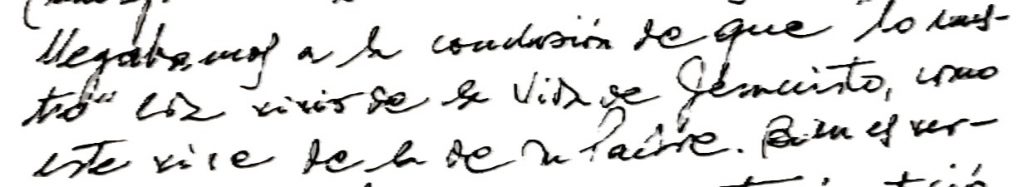 llegábamos a la conclusión de que "lo nues-
tro" era vivir de la Vida de Jesucristo, como
este vive de la de su Padre. Bien es ver-